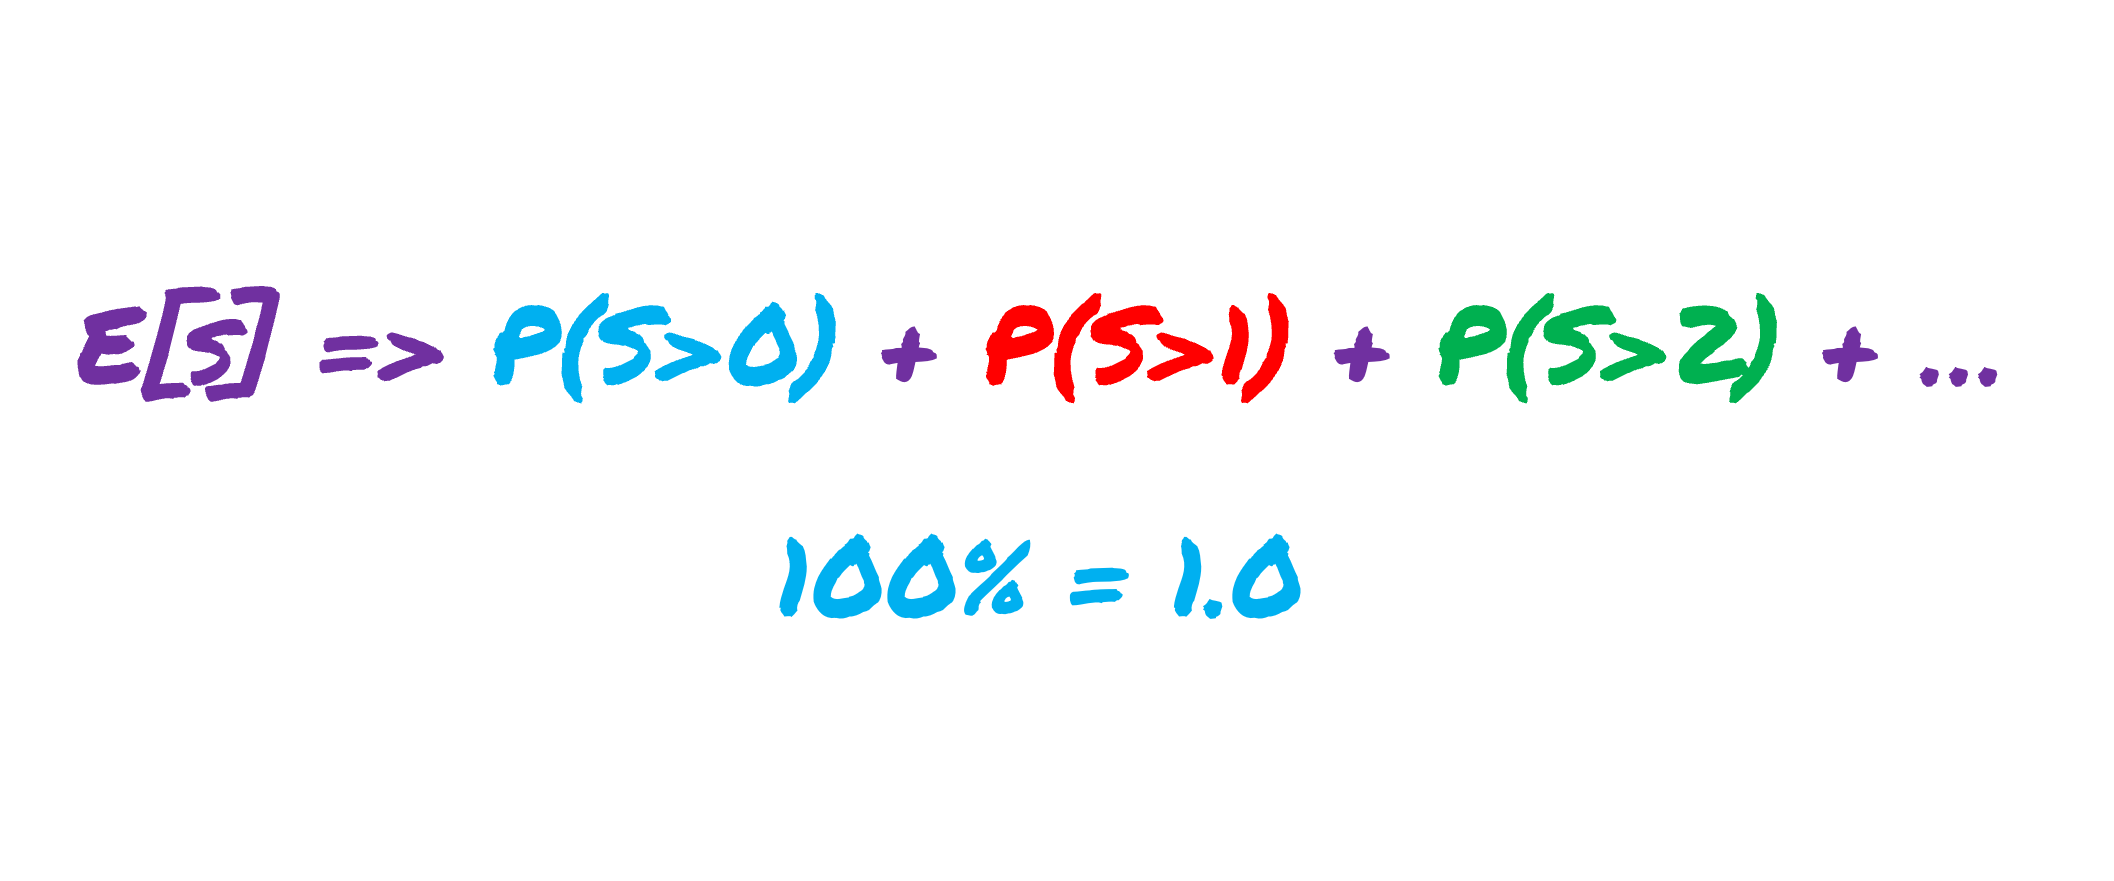 E[S] => P(S>0) + P(S>1) + P(S>2) + ...
100% = 1.0